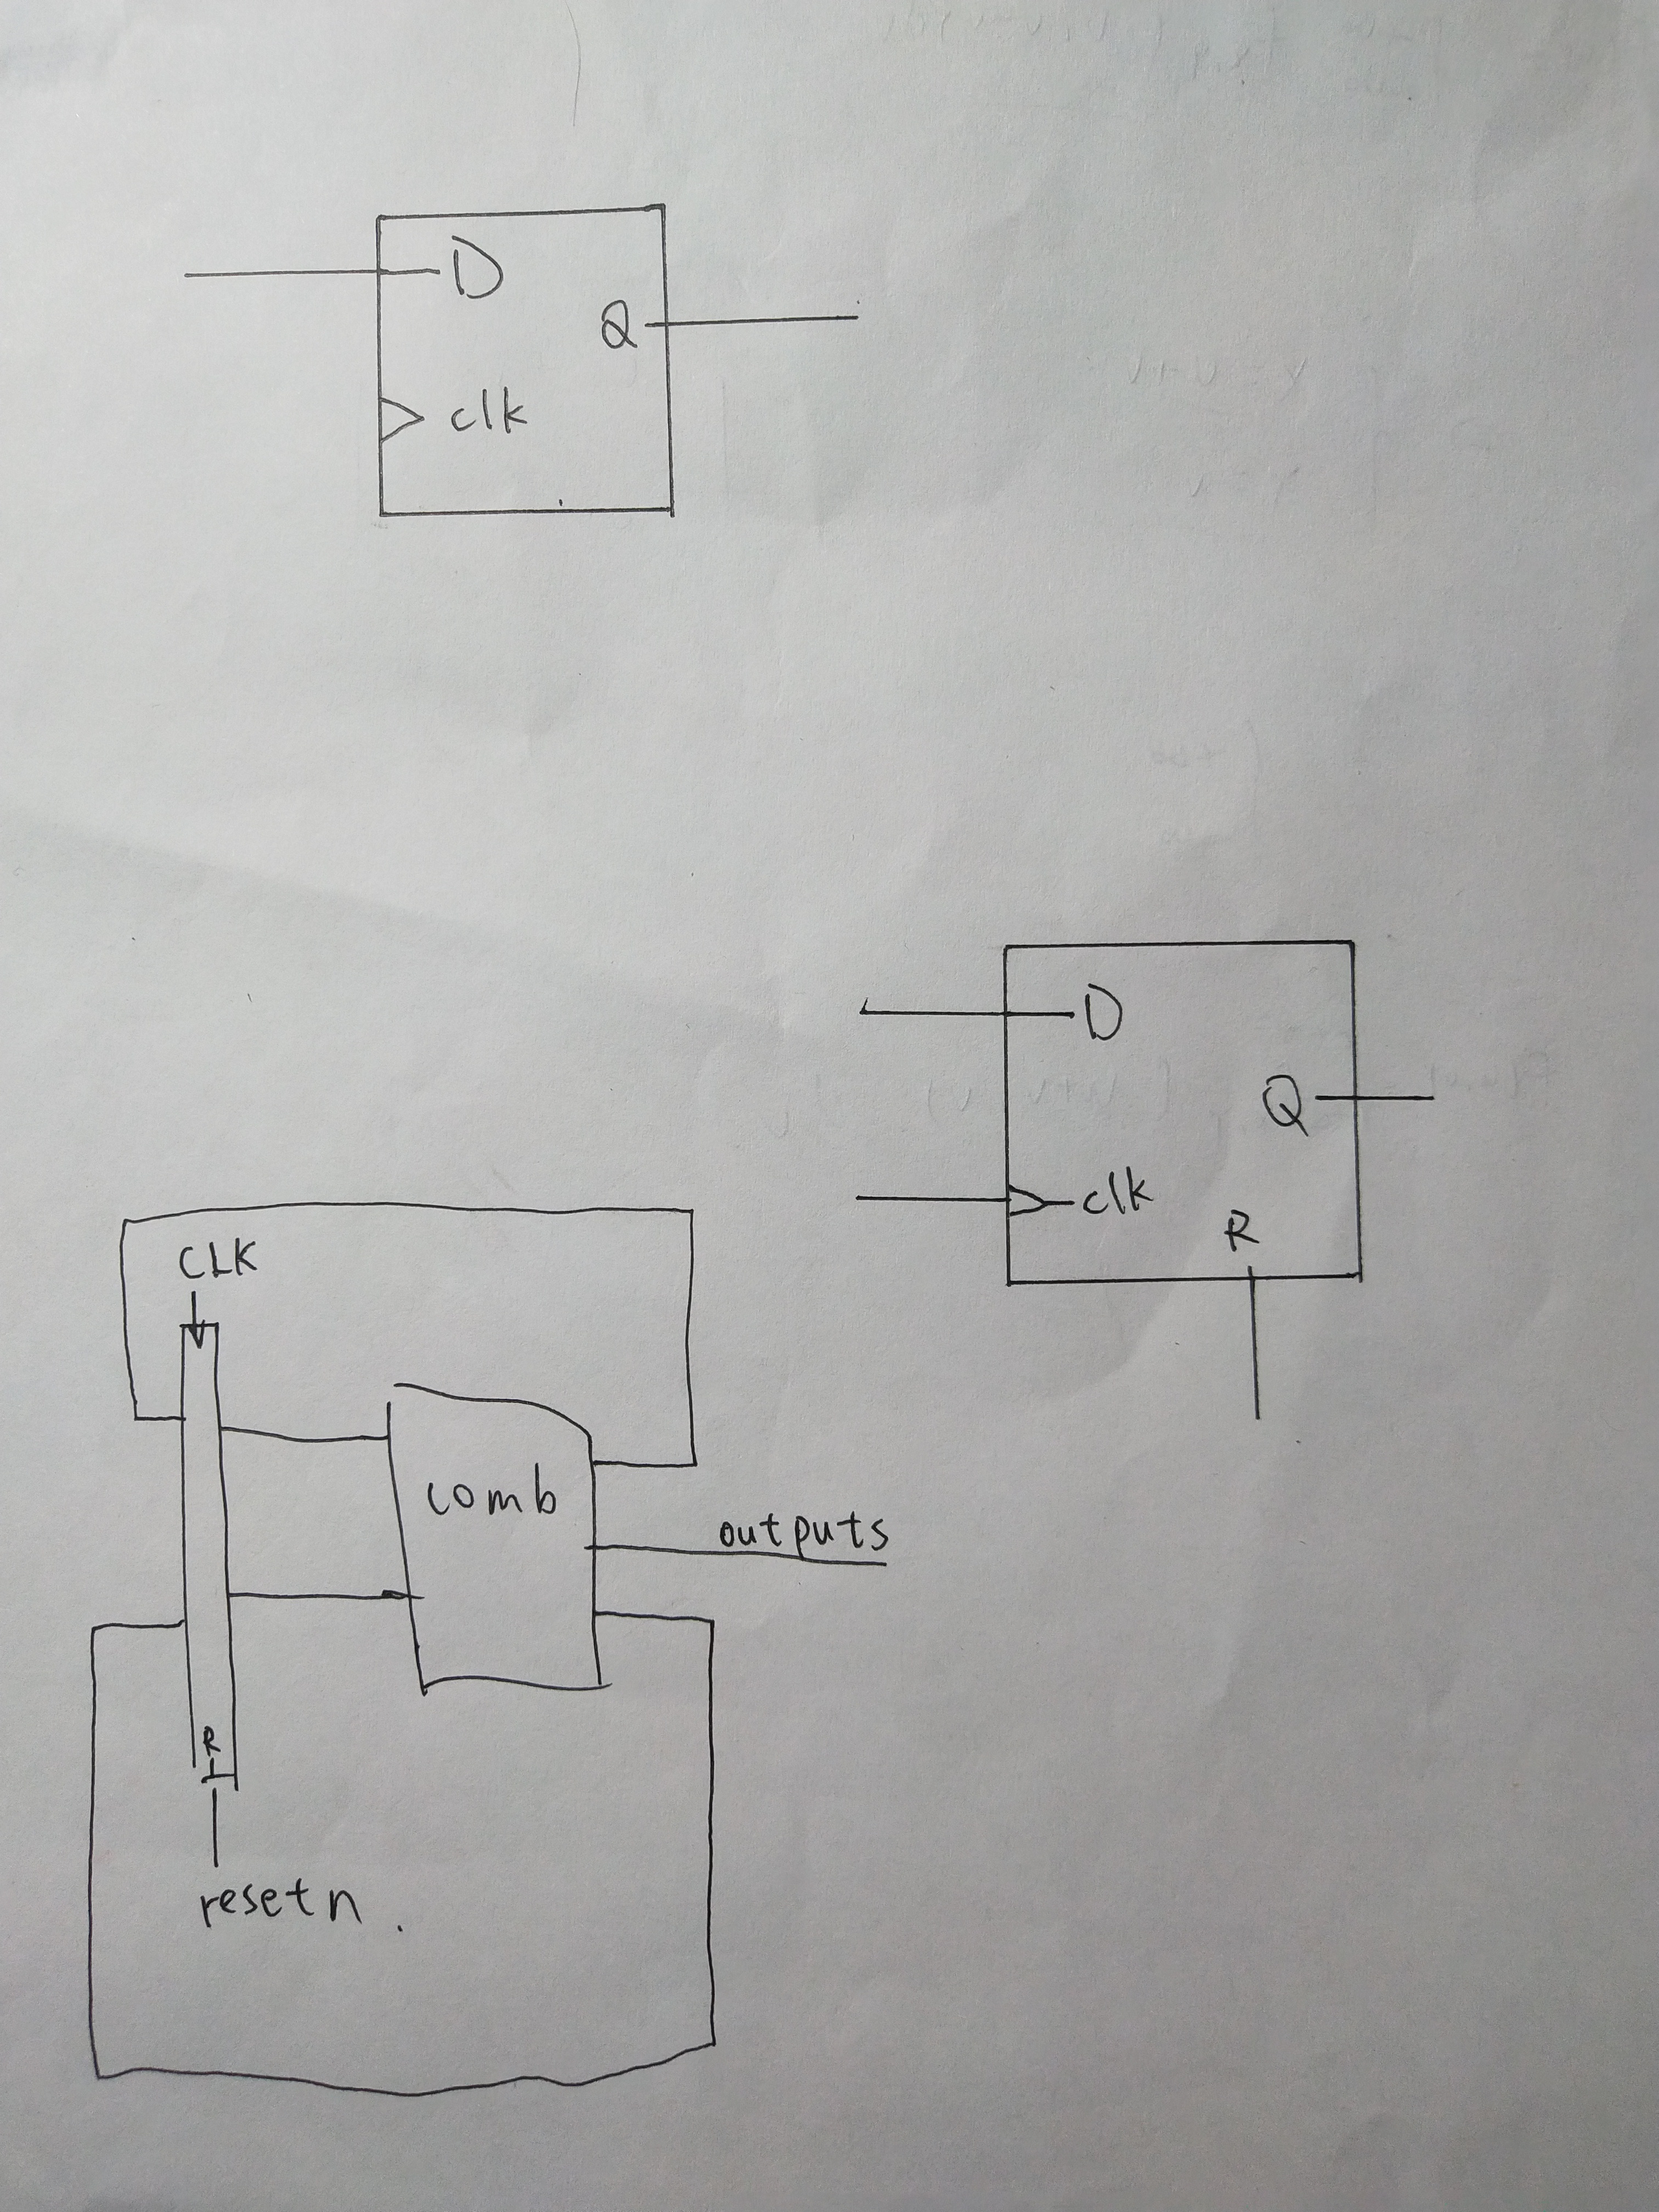 D
Q
clk
D
Q
clk
R
CLK
comb
outputs
R
resetn.